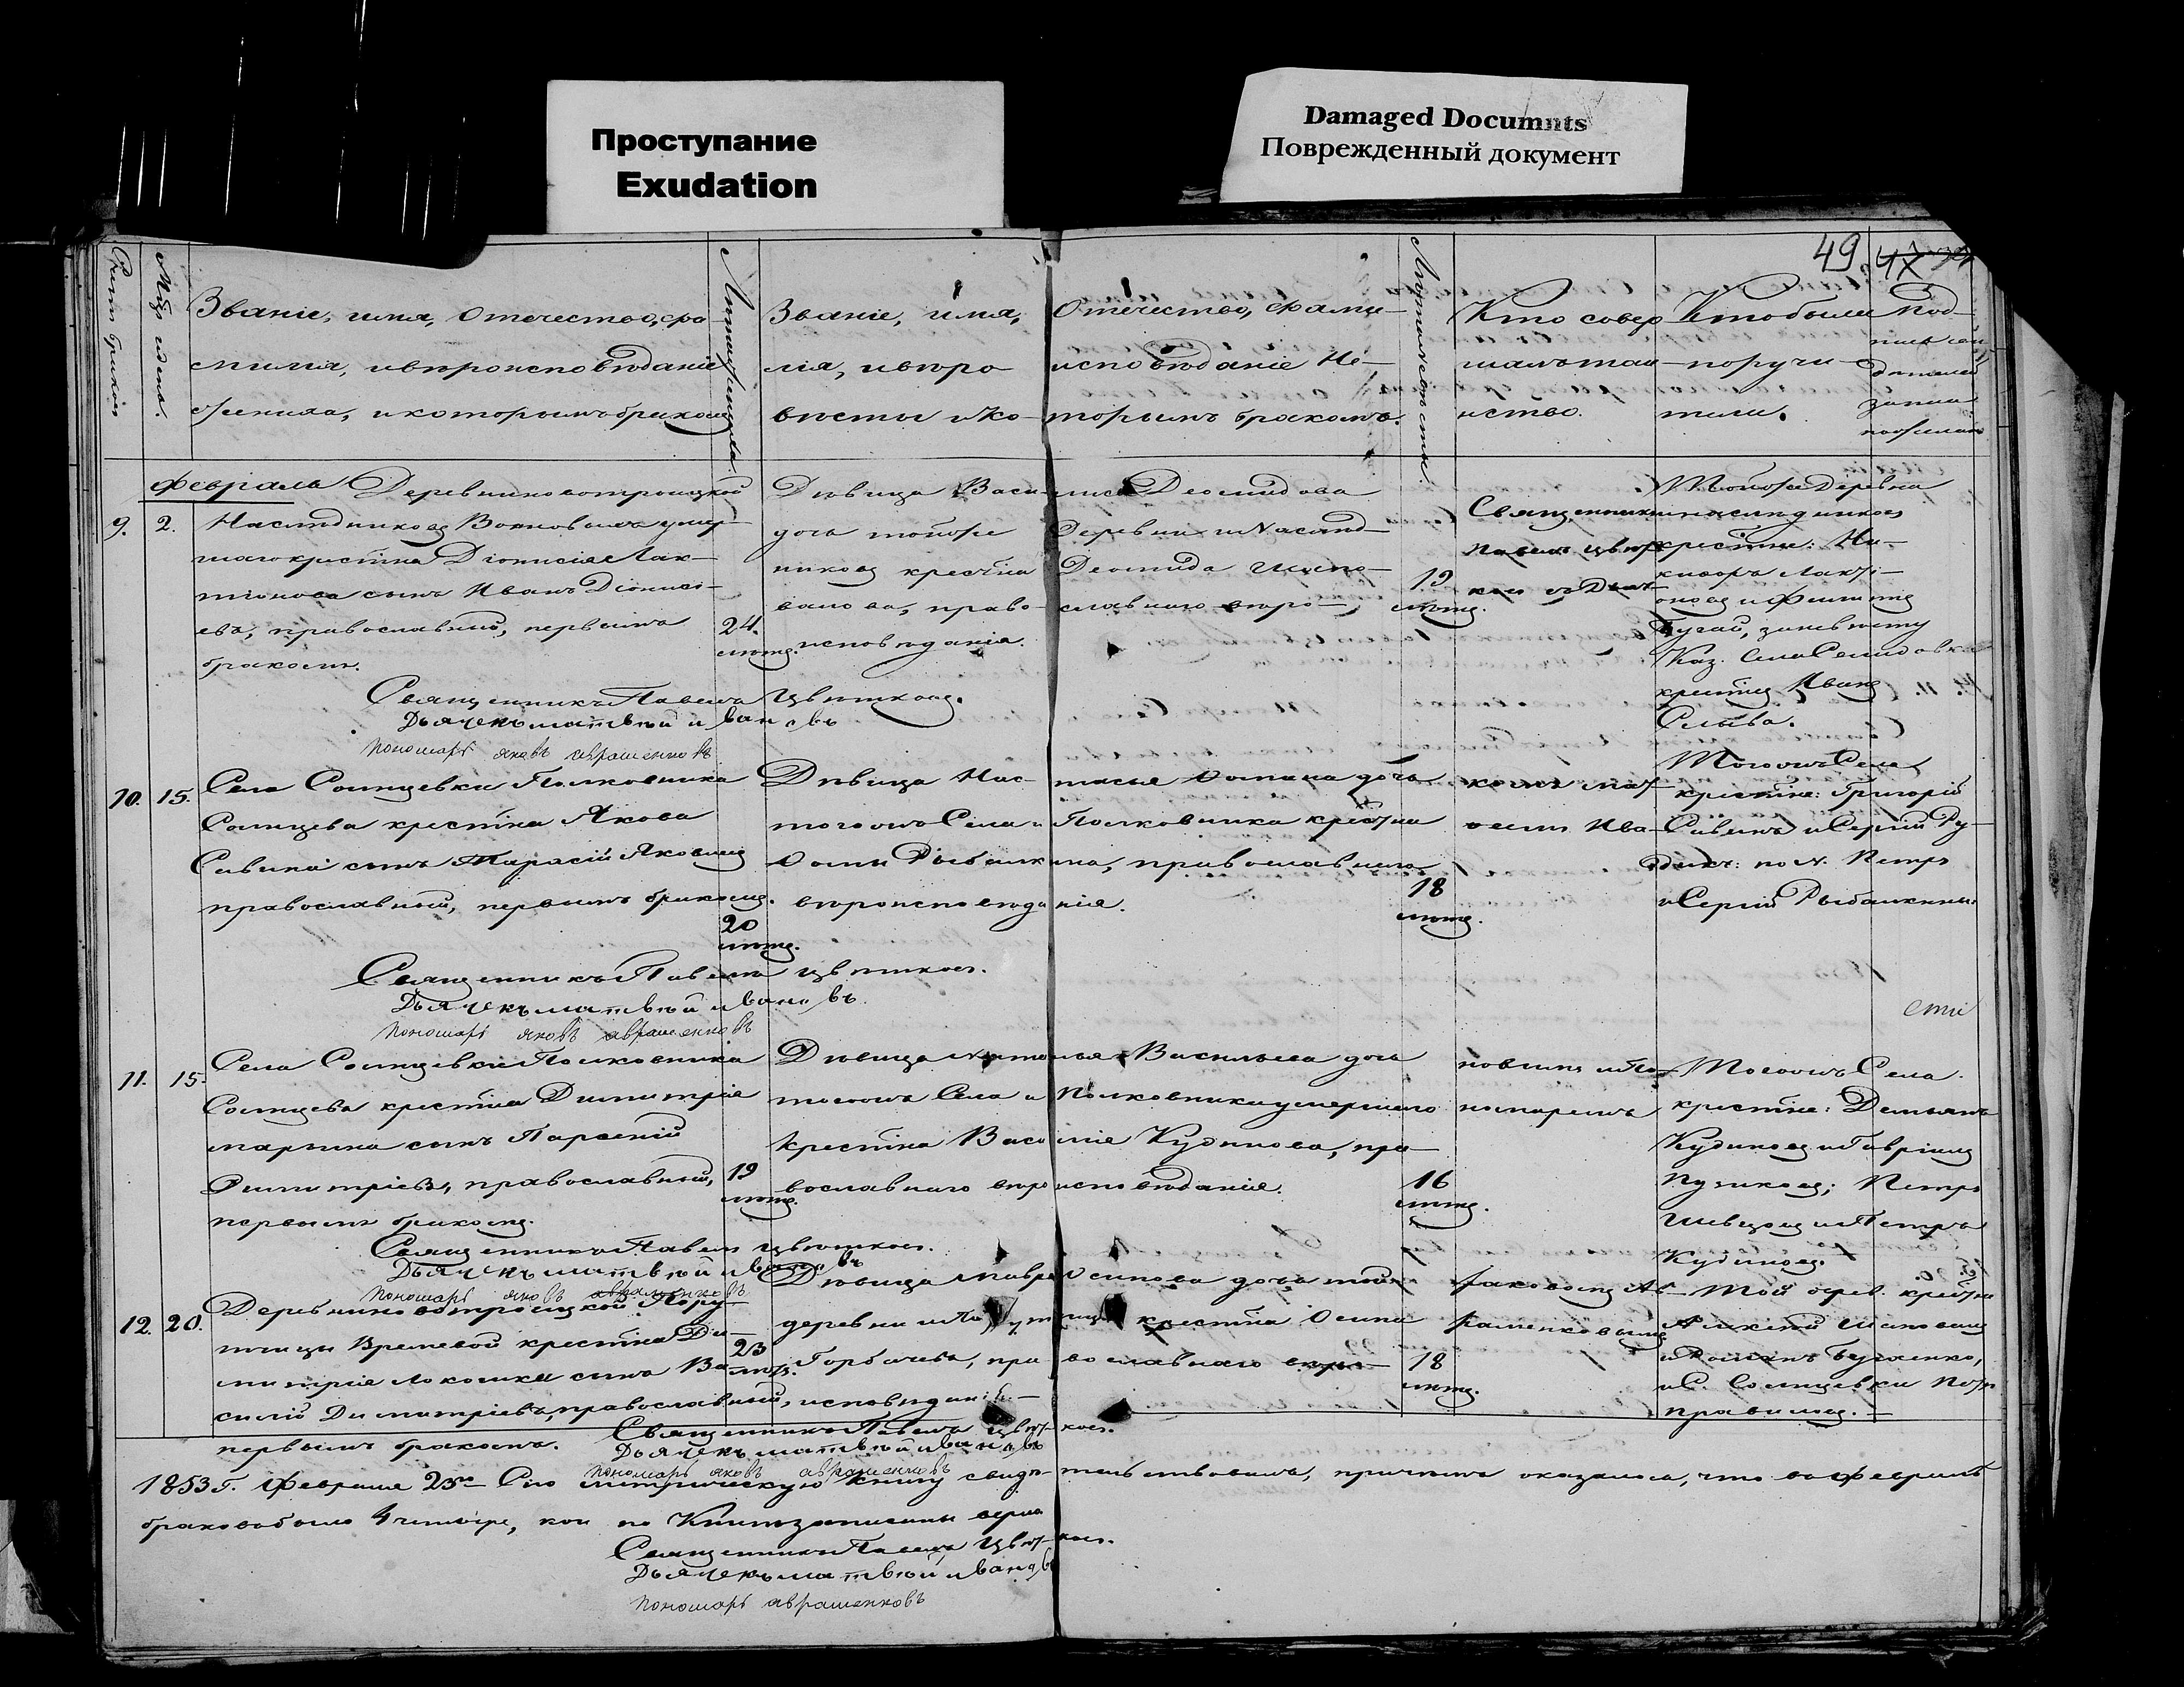 Проступание
Exudation
Damaged Documnts
Поврежденный документ
49.
Счетъ браковъ
Мѣц. и дни.
Званіе, имя, Отчество, фа
милія, и вѣроисповѣданіе
жениха, и которымъ бракомъ
Лѣта жениха.
Званіе, имя, Отчество, фами-
лія, и вѣро исповѣданіе Не-
вѣсты и ко- торымъ бракомъ.
Лѣта невѣсты.
Кто совер
шалъ таин
ство.
Кто были
поручи
тели.
Февраль
9. 2.
Деревни новотроицкой
Наслѣдниковъ умер-
шаго крестна Діонисія Лак-
тіонова сынъ Иванъ Діонисі-
евъ, православный, первымъ
бракомъ.
24.
лѣтъ.
Дѣвица Васи- лиса Деомидова
дочь тойже Деревни и Наслѣд-
никовъ крестна Деомида
православнаго вѣро-
исповѣданія.
19
лѣтъ.
Священникъ
Павелъ Цвѣт
ковъ съ Дьяч
Тойже Деревни
наслѣдниковъ
крестне: Ни-
Каз. Села
крестн. Иванъ
Священникъ Павелъ Цвѣтковъ.
Дьячекъ матвѣй ивановъ
пономарь яковъ авраменковъ
10. 15.
Села Солнцевки Полковника
Солнцева крестна Якова
Савина сынъ Тарасій Яковлевъ
православный, первымъ бракомъ.
20
лѣтъ.
Дѣвица Нас- тасья Фомина дочь
тогожъ Села и Полковника крестна
Фомы Рыбалкина, православнаго
вѣроисповѣданія.
18
лѣтъ.
комъ мат-
веем Ива-
Тогожъ Села
крестне: Григорій
Савинъ и Сергій Ру-
дикъ: по Н. Петръ
и Сергій Рыбалкины
Священникъ Павелъ Цвѣтковъ.
Дьячекъ матвѣй ивановъ
пономарь яковъ авраменковъ
11. 15.
Села Солнцевки Полковника
Солнцева крестна Димитрія
марьина сынъ Парфеній
Димитріевъ, православный,
первымъ бракомъ.
19
лѣтъ.
Дѣвица Наталья Васильева дочь
тогожъ Села и Полковника умершаго
крестна Василія Кудинова, пра-
вославнаго вѣроисповѣданія.
16
лѣтъ.
новымъ и По-
номаремъ
Тогожъ Села
крестне: Демьянъ
Кудиновъ и Гавріилъ
Пузиковъ; Петръ
Шевцовъ и Петръ
Кудиновъ.
Священникъ Павелъ Цвѣтковъ.
Дьячекъ матвѣй ивановъ
пономарь яковъ авраменковъ
12. 20.
Деревни новотроицкой Пору-
тчицы крестна Ди-
митрія сынъ Ва-
силій Димитріевъ, православный,
первымъ бракомъ.
23
лѣтъ.
Дѣвица мавра Осипова дочь той
деревни и Поручицы крестна Осипа
Горбачева, православнаго вѣро-
исповѣданія.
18
лѣтъ.
Яковомъ Ав-
раменковымъ
Той дерев. крестне
Алексѣй
и Романъ
и С. Солнцевки
Священникъ Павелъ Цвѣтковъ.
Дьячекъ матвѣй ивановъ
пономарь яковъ авраменковъ
1853 г. Февраля 23го Сію метрическую книгу свидѣтельствовалъ, причемъ оказалось, что въ февралѣ
браковъ было 4 четыре, кои
Священникъ Павелъ Цвѣтковъ.
Дьячекъ матвѣй ивановъ
пономарь авраменковъ